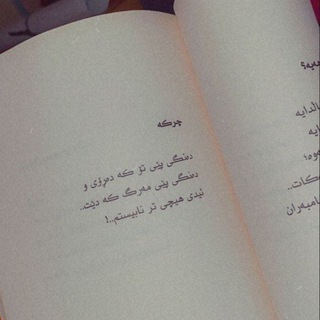 چرکە
دەنگی پێی تۆ کە دەڕۆی و
دەنگی پێی مەرگ کە دێت..
ئیدی هیچی تر نابیستم..!
یە؟
ڵدایە
ایە
کات..
امبەران